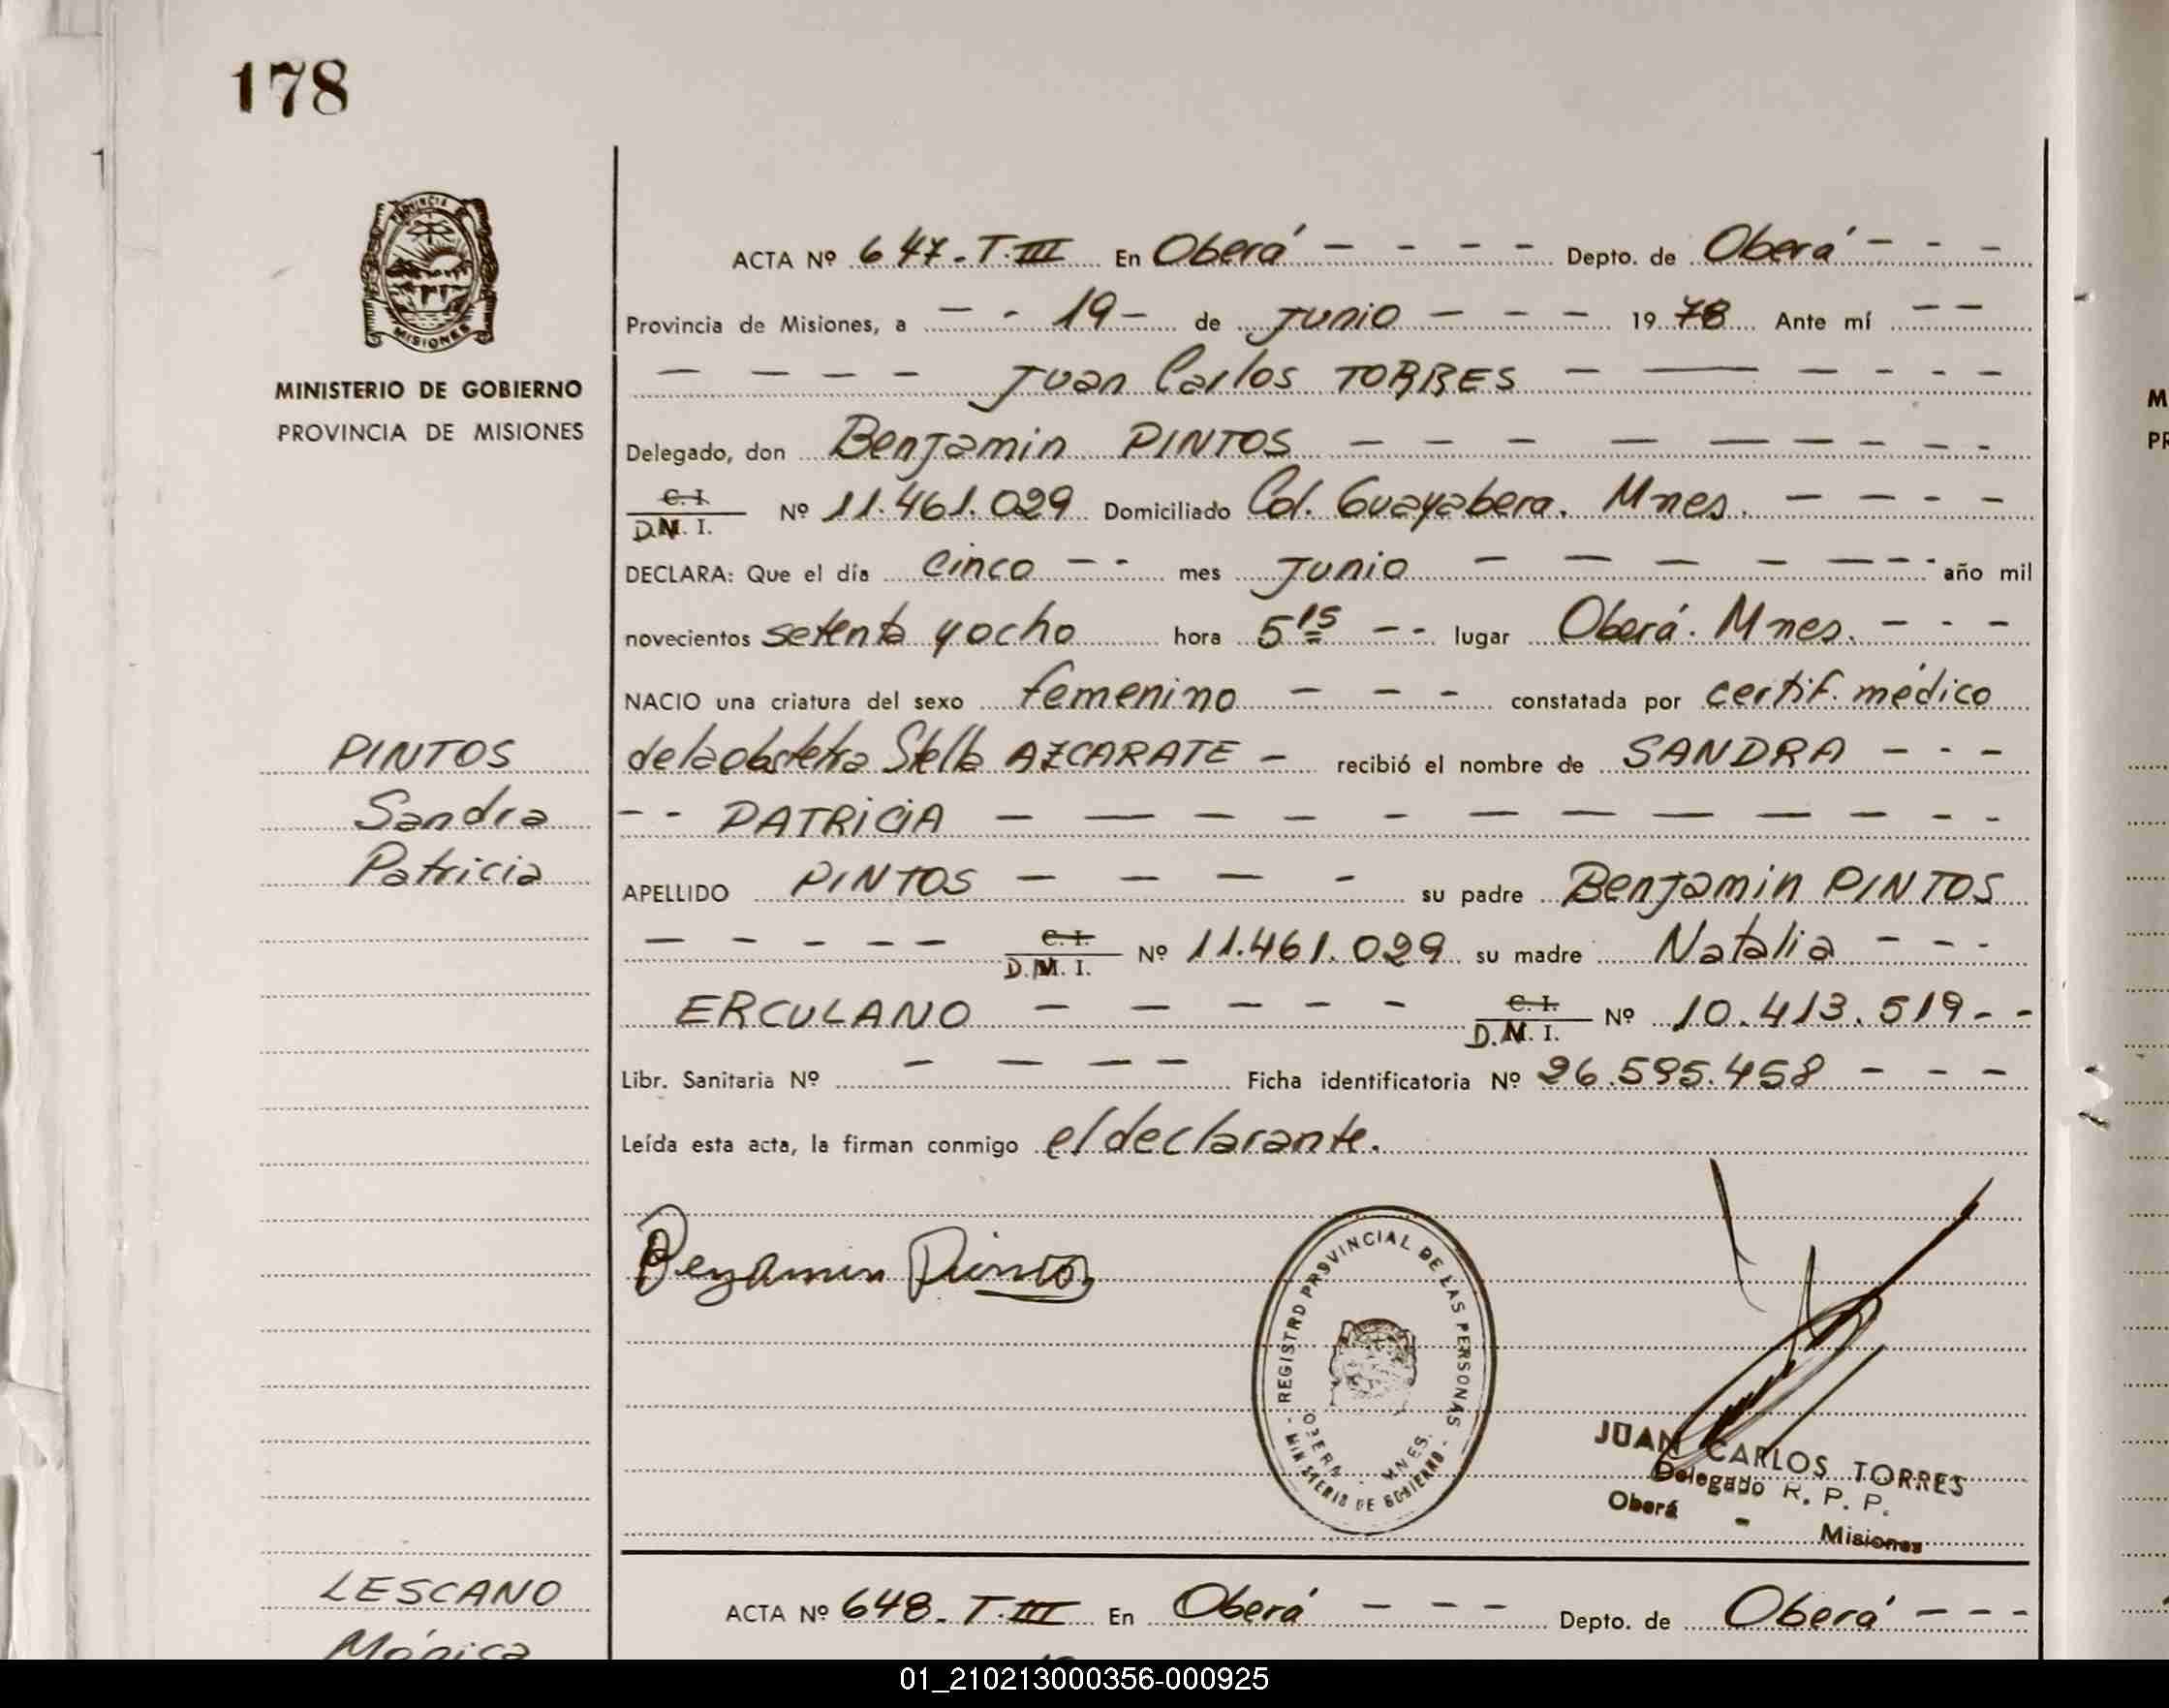 178
PROVINCIA DE
MISIONES
MINISTERIO DE GOBIERNO
PROVINCIA DE MISIONES
ACTA Nº 647-T-III En Oberá - - - - Depto. de Oberá - - -
Provincia de Misiones, a - - 19 - de junio - - - 1978 Ante mí - -
- - - - Juan Carlos TORRES - - - - - -
Delegado, don Benjamin PINTOS - - - - - - - - -
C. I.
D.M. I. Nº 11.461.029 Domiciliado Col. Guayabera. Mnes. - - - -
DECLARA: Que el día cinco - - mes junio - - - - - - - año mil
novecientos setenta y ocho hora 5 15 - - lugar Oberá. Mnes. - - -
NACIO una criatura del sexo femenino - - - constatada por certif. médico
PINTOS
de la obstetra Stella AZCARATE - recibió el nombre de SANDRA - - -
Sandra
- - PATRICIA - - - - - - - - - - - -
Patricia
APELLIDO PINTOS - - - - su padre Benjamin PINTOS
- - - - - C. I.
D.M. I. Nº 11.461.029 su madre Natalia - - -
ERCULANO - - - - - C. I.
D.M. I. Nº 10.413.519 - -
Libr. Sanitaria Nº - - - - Ficha identificatoria Nº 26.595.458 - - -
Leída esta acta, la firman conmigo el declarante.
Benjamin Pintos
REGISTRO PROVINCIAL DE LAS PERSONAS
OBERA - MNES.
- MINISTERIO DE GOBIERNO -
JUAN CARLOS TORRES
Delegado R. P. P.
Oberá - Misiones
LESCANO
ACTA Nº 648-T-III En Oberá - - - Depto. de Oberá - - -
Mónica
01_210213000356-000925